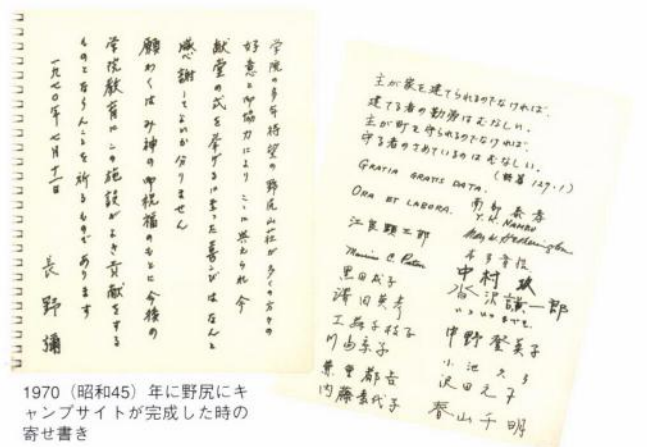 学院の多年待望の野尻山荘が多くの方々の
好意と御協力により ここに与えられ今
献堂の式を挙げるに至った喜びはなんと
感謝してよいか分りません
願わくはみ神の御祝福のもとに今後の
学院教育にこの施設がよき貢献をする
ものとならんことを祈るものであります
一九七〇年七月十一日
長野彌
主が家を建てられるのでなければ、
建てる者の勤労はむなしい。
主が町を守られるのでなければ、
守る者のさめているのはむなしい。
(詩篇 127.1)
GRATIA GRATIS DATA.
ORA ET LABORA.
南部泰孝
Y.K. NAMBU
May W. Hetherington
江良顕三郎
中村
黒田成子
いついつまでも
濱田英彦
中野登美子
工藤千枝子
小池久子
川島京子
沢田之子
業里都吉
内藤喜代子
春山千明
1970(昭和45)年に野尻にキ
ャンプサイトが完成した時の
寄せ書き